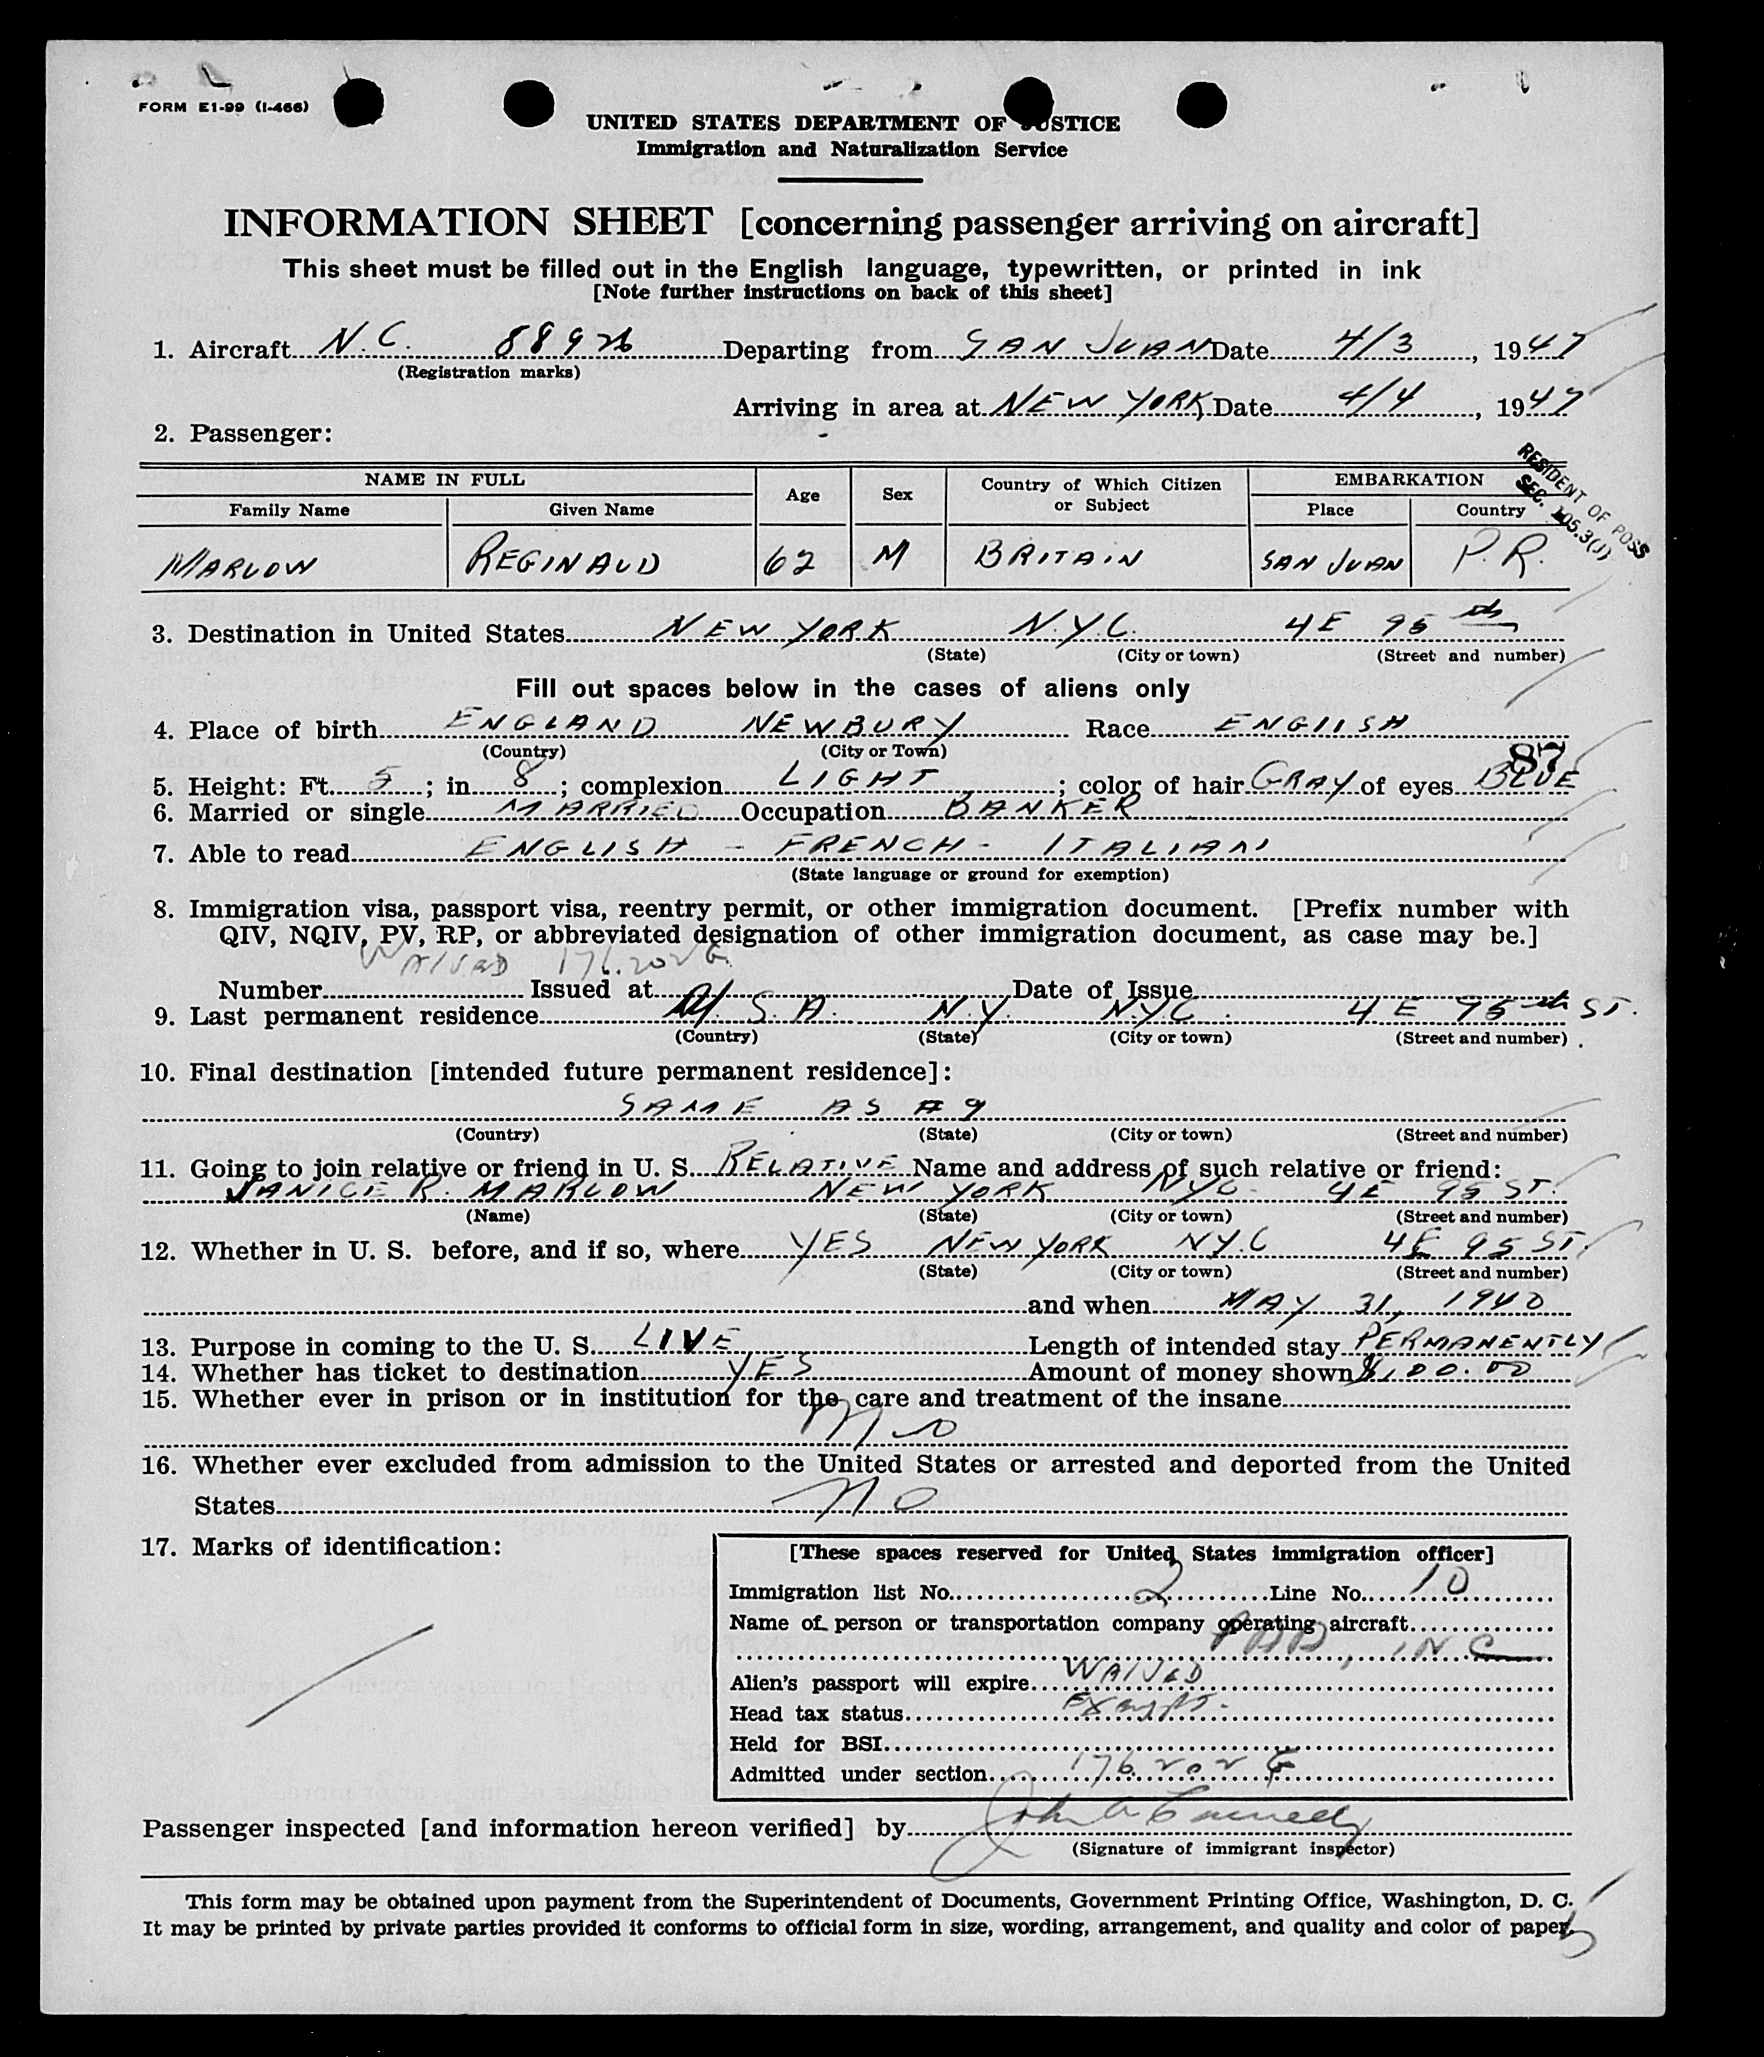 FORM E1-99 (I-466)
UNITED STATES DEPARTMENT OF JUSTICE
Immigration and Naturalization Service
INFORMATION SHEET [concerning passenger arriving on aircraft]
This sheet must be filled out in the English language, typewritten, or printed in ink
[Note further instructions on back of this sheet]
1. Aircraft N.C. Departing from SAN JUAN Date 4/3, 1947
(Registration marks)
Arriving in area at NEW YORK Date 4/4, 1947
2. Passenger:
RESIDENT OF POSS
SEC. 105.3(J)
NAME IN FULL Age Sex Country of Which Citizen or Subject EMBARKATION
Family Name Given Name Place Country
MARLOW REGINALD 62 M BRITAIN SAN JUAN P.R.
3. Destination in United States NEW YORK N.Y.C. 4E 95th
(State) (City or town) (Street and number)
Fill out spaces below in the cases of aliens only
4. Place of birth ENGLAND NEWBURY Race ENGLISH
(Country) (City or Town)
87
5. Height: Ft. 5; in 8; complexion LIGHT; color of hair GRAY of eyes BLUE
6. Married or single MARRIED Occupation BANKER
7. Able to read ENGLISH - FRENCH - ITALIAN
(State language or ground for exemption)
8. Immigration visa, passport visa, reentry permit, or other immigration document. [Prefix number with
QIV, NQIV, PV, RP, or abbreviated designation of other immigration document, as case may be.]
WAIVED 176.202 G
Number Issued at Date of Issue
9. Last permanent residence U.S.A. N.Y. N.Y.C. 4 E 95th ST.
(Country) (State) (City or town) (Street and number)
10. Final destination [intended future permanent residence]:
SAME AS #9
(Country) (State) (City or town) (Street and number)
11. Going to join relative or friend in U. S. RELATIVE Name and address of such relative or friend:
JANICE R. MARLOW NEW YORK NYC. 4E 95 ST.
(Name) (State) (City or town) (Street and number)
12. Whether in U. S. before, and if so, where YES NEW YORK NY.C 4E 95 ST.
(State) (City or town) (Street and number)
and when MAY 31, 1940
13. Purpose in coming to the U. S. LIVE Length of intended stay PERMANENTLY
14. Whether has ticket to destination YES Amount of money shown $100.00
15. Whether ever in prison or in institution for the care and treatment of the insane
No
16. Whether ever excluded from admission to the United States or arrested and deported from the United
States NO
17. Marks of identification:
[These spaces reserved for United States immigration officer]
Immigration list No. 2 Line No. 10
Name of person or transportation company operating aircraft
PAA, INC
Alien's passport will expire WAIVED
Head tax status Exempt.
Held for BSI
Admitted under section 176.202 G
Passenger inspected [and information hereon verified] by John
(Signature of immigrant inspector)
This form may be obtained upon payment from the Superintendent of Documents, Government Printing Office, Washington, D. C.
It may be printed by private parties provided it conforms to official form in size, wording, arrangement, and quality and color of paper.